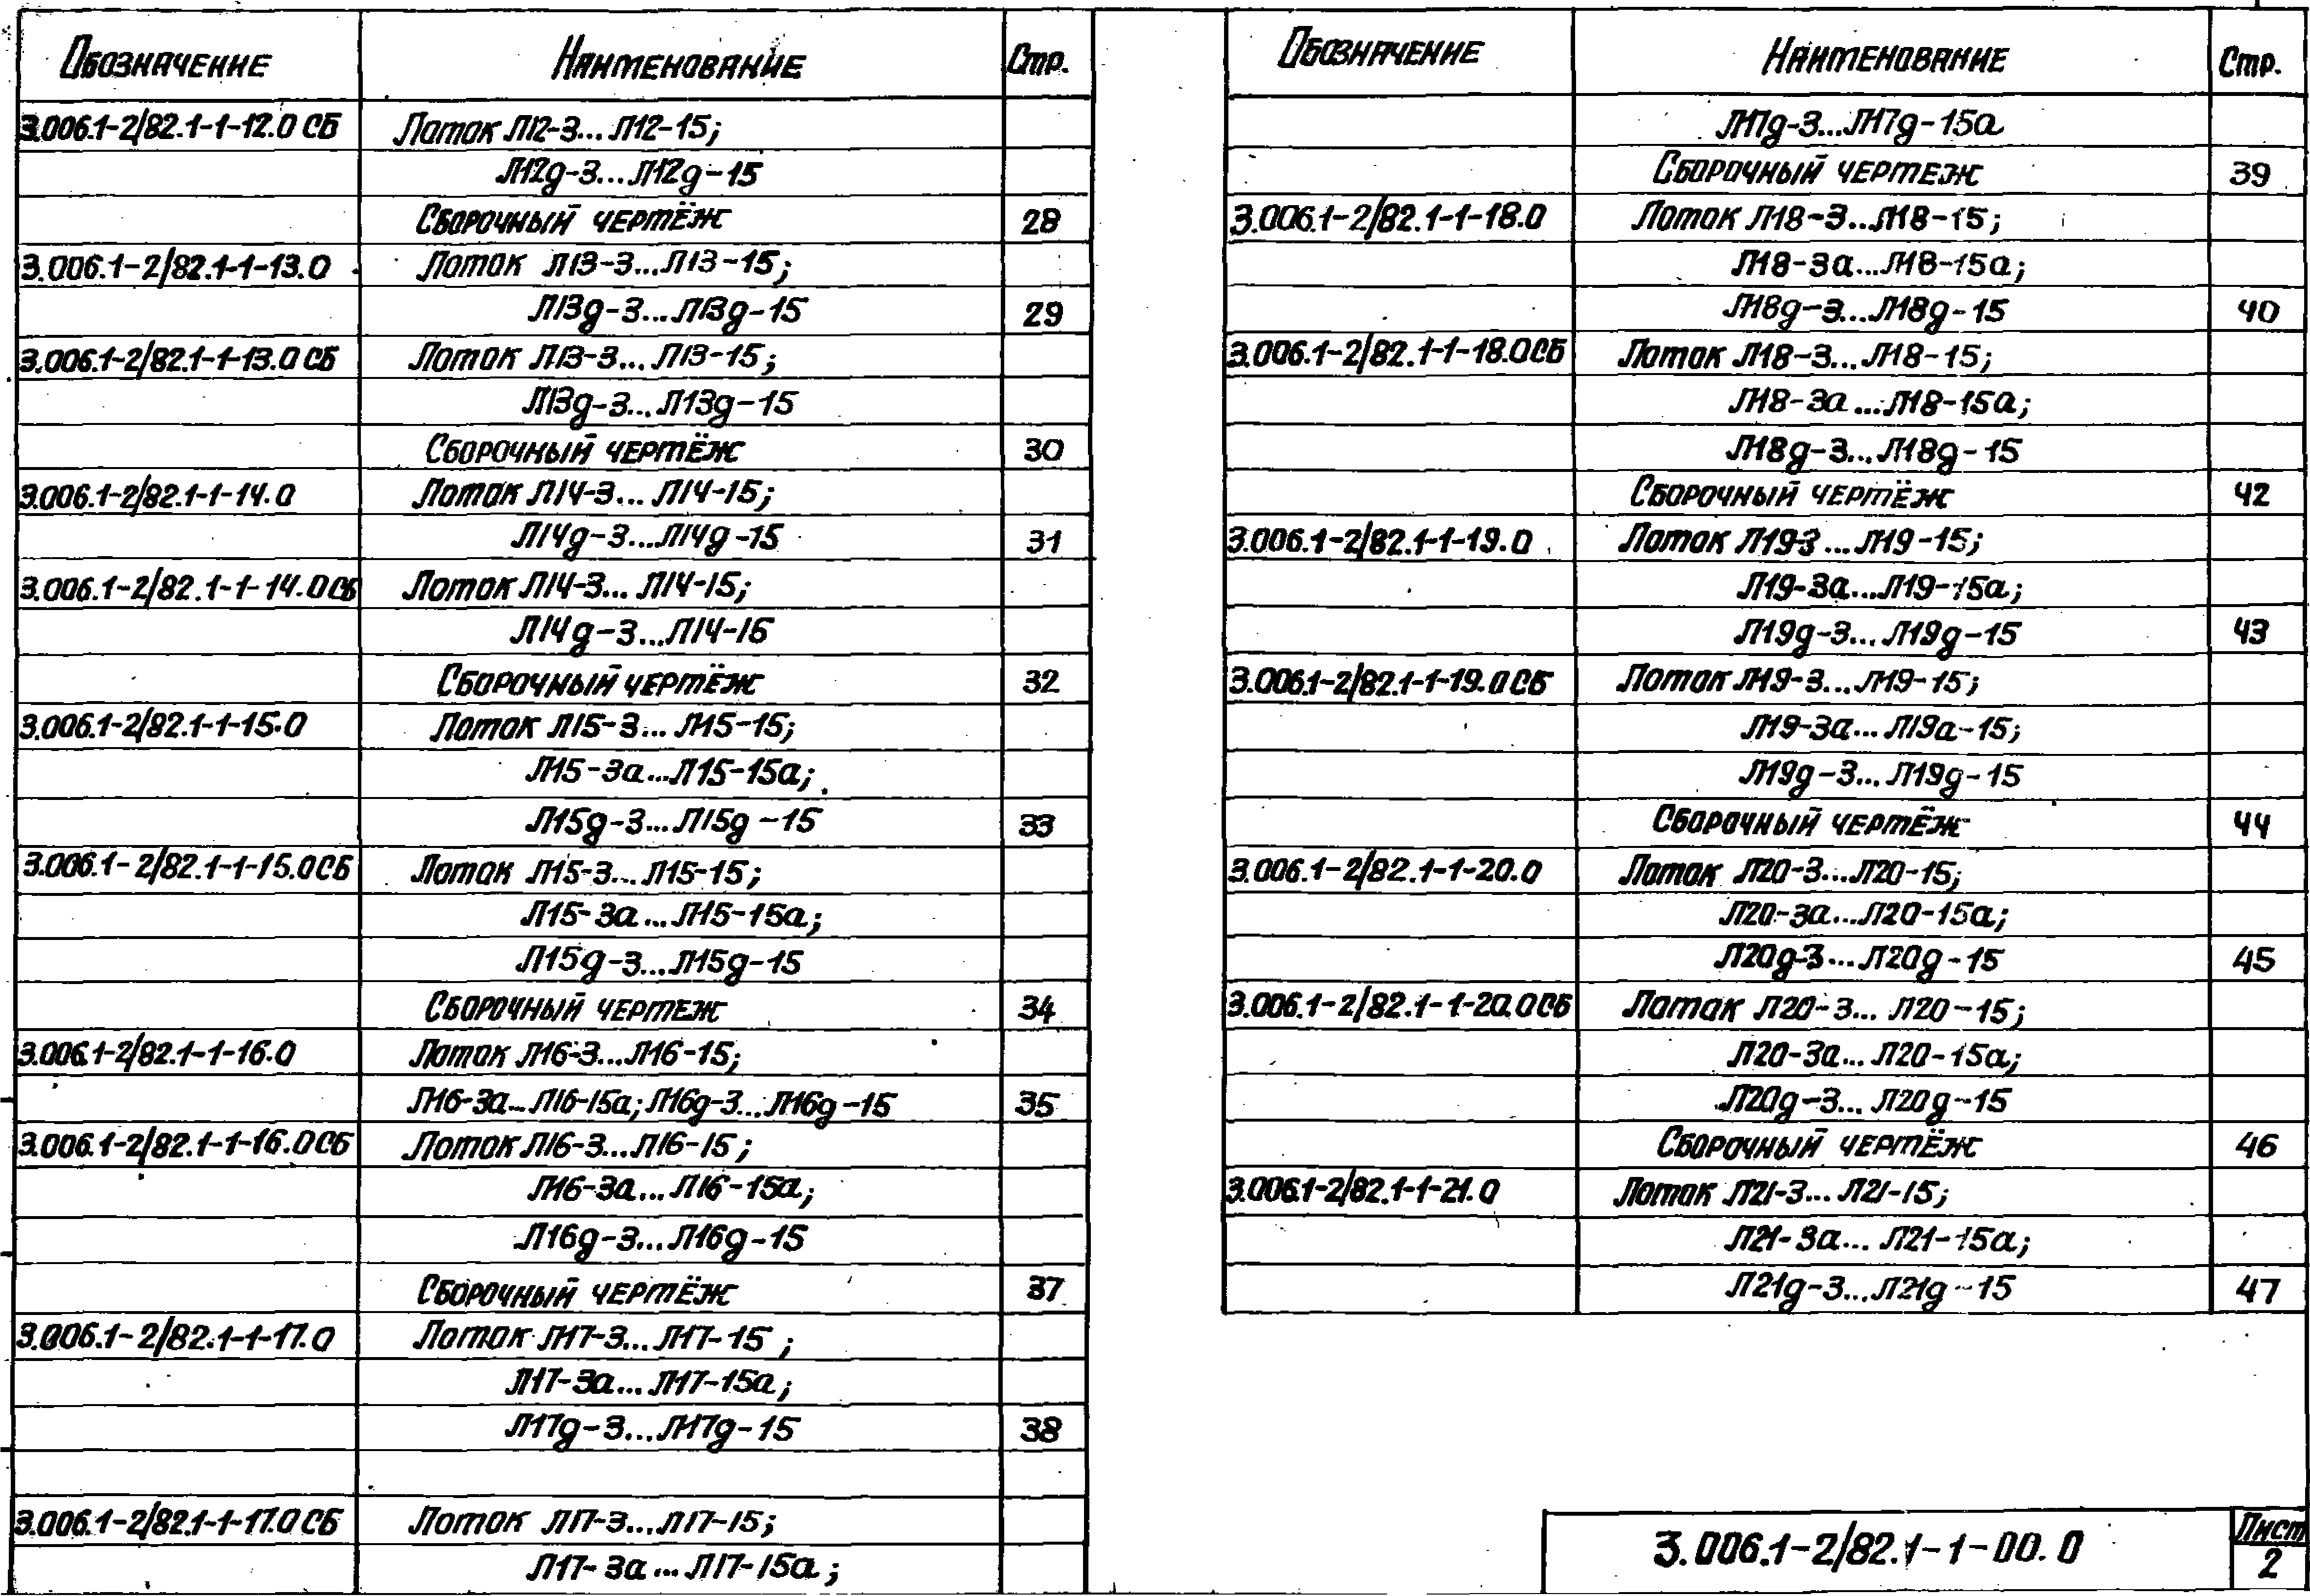 Обозначение Наименование Стр.
3.006.1-2/82.1-1-12.0 СБ Лоток Л12-3...Л12-15;
Л12д-3...Л12д-15
Сборочный чертёж 28
3.006.1-2/82.1-1-13.0 Лоток Л13-3...Л13-15;
Л13д-3...Л13д-15 29
3.006.1-2/82.1-1-13.0 СБ Лоток Л13-3...Л13-15;
Л13д-3...Л13д-15
Сборочный чертёж 30
3.006.1-2/82.1-1-14.0 Лоток Л14-3...Л14-15;
Л14д-3...Л14д-15 31
3.006.1-2/82.1-1-14.0 СБ Лоток Л14-3...Л14-15;
Л14д-3...Л14-15
Сборочный чертёж 32
3.006.1-2/82.1-1-15.0 Лоток Л15-3...Л15-15;
Л15-3а...Л15-15а;
Л15д-3...Л15д-15 33
3.006.1-2/82.1-1-15.0 СБ Лоток Л15-3...Л15-15;
Л15-3а...Л15-15а;
Л15д-3...Л15д-15
Сборочный чертеж 34
3.006.1-2/82.1-1-16.0 Лоток Л16-3...Л16-15;
Л16-3а...Л16-15а; Л16д-3...Л16д-15 35
3.006.1-2/82.1-1-16.0 СБ Лоток Л16-3...Л16-15;
Л16-3а...Л16-15а;
Л16д-3...Л16д-15
Сборочный чертёж 37
3.006.1-2/82.1-1-17.0 Лоток Л17-3...Л17-15;
Л17-3а...Л17-15а;
Л17д-3...Л17д-15 38
3.006.1-2/82.1-1-17.0 СБ Лоток Л17-3...Л17-15;
Л17-3а...Л17-15а;
Обозначение Наименование Стр.
Л17д-3...Л17д-15а
Сборочный чертеж 39
3.006.1-2/82.1-1-18.0 Лоток Л18-3...Л18-15;
Л18-3а...Л18-15а;
Л18д-3...Л18д-15 40
3.006.1-2/82.1-1-18.0 СБ Лоток Л18-3...Л18-15;
Л18-3а...Л18-15а;
Л18д-3...Л18д-15
Сборочный чертёж 42
3.006.1-2/82.1-1-19.0 Лоток Л19-3...Л19-15;
Л19-3а...Л19-15а;
Л19д-3...Л19д-15 43
3.006.1-2/82.1-1-19.0 СБ Лоток Л19-3...Л19-15;
Л19-3а...Л19а-15;
Л19д-3...Л19д-15
Сборочный чертёж 44
3.006.1-2/82.1-1-20.0 Лоток Л20-3...Л20-15;
Л20-3а...Л20-15а;
Л20д-3...Л20д-15 45
3.006.1-2/82.1-1-20.0 СБ Лоток Л20-3...Л20-15;
Л20-3а...Л20-15а;
Л20д-3...Л20д-15
Сборочный чертёж 46
3.006.1-2/82.1-1-21.0 Лоток Л21-3...Л21-15;
Л21-3а...Л21-15а;
Л21д-3...Л21д-15 47
3.006.1-2/82.1-1-00.0 Лист
2